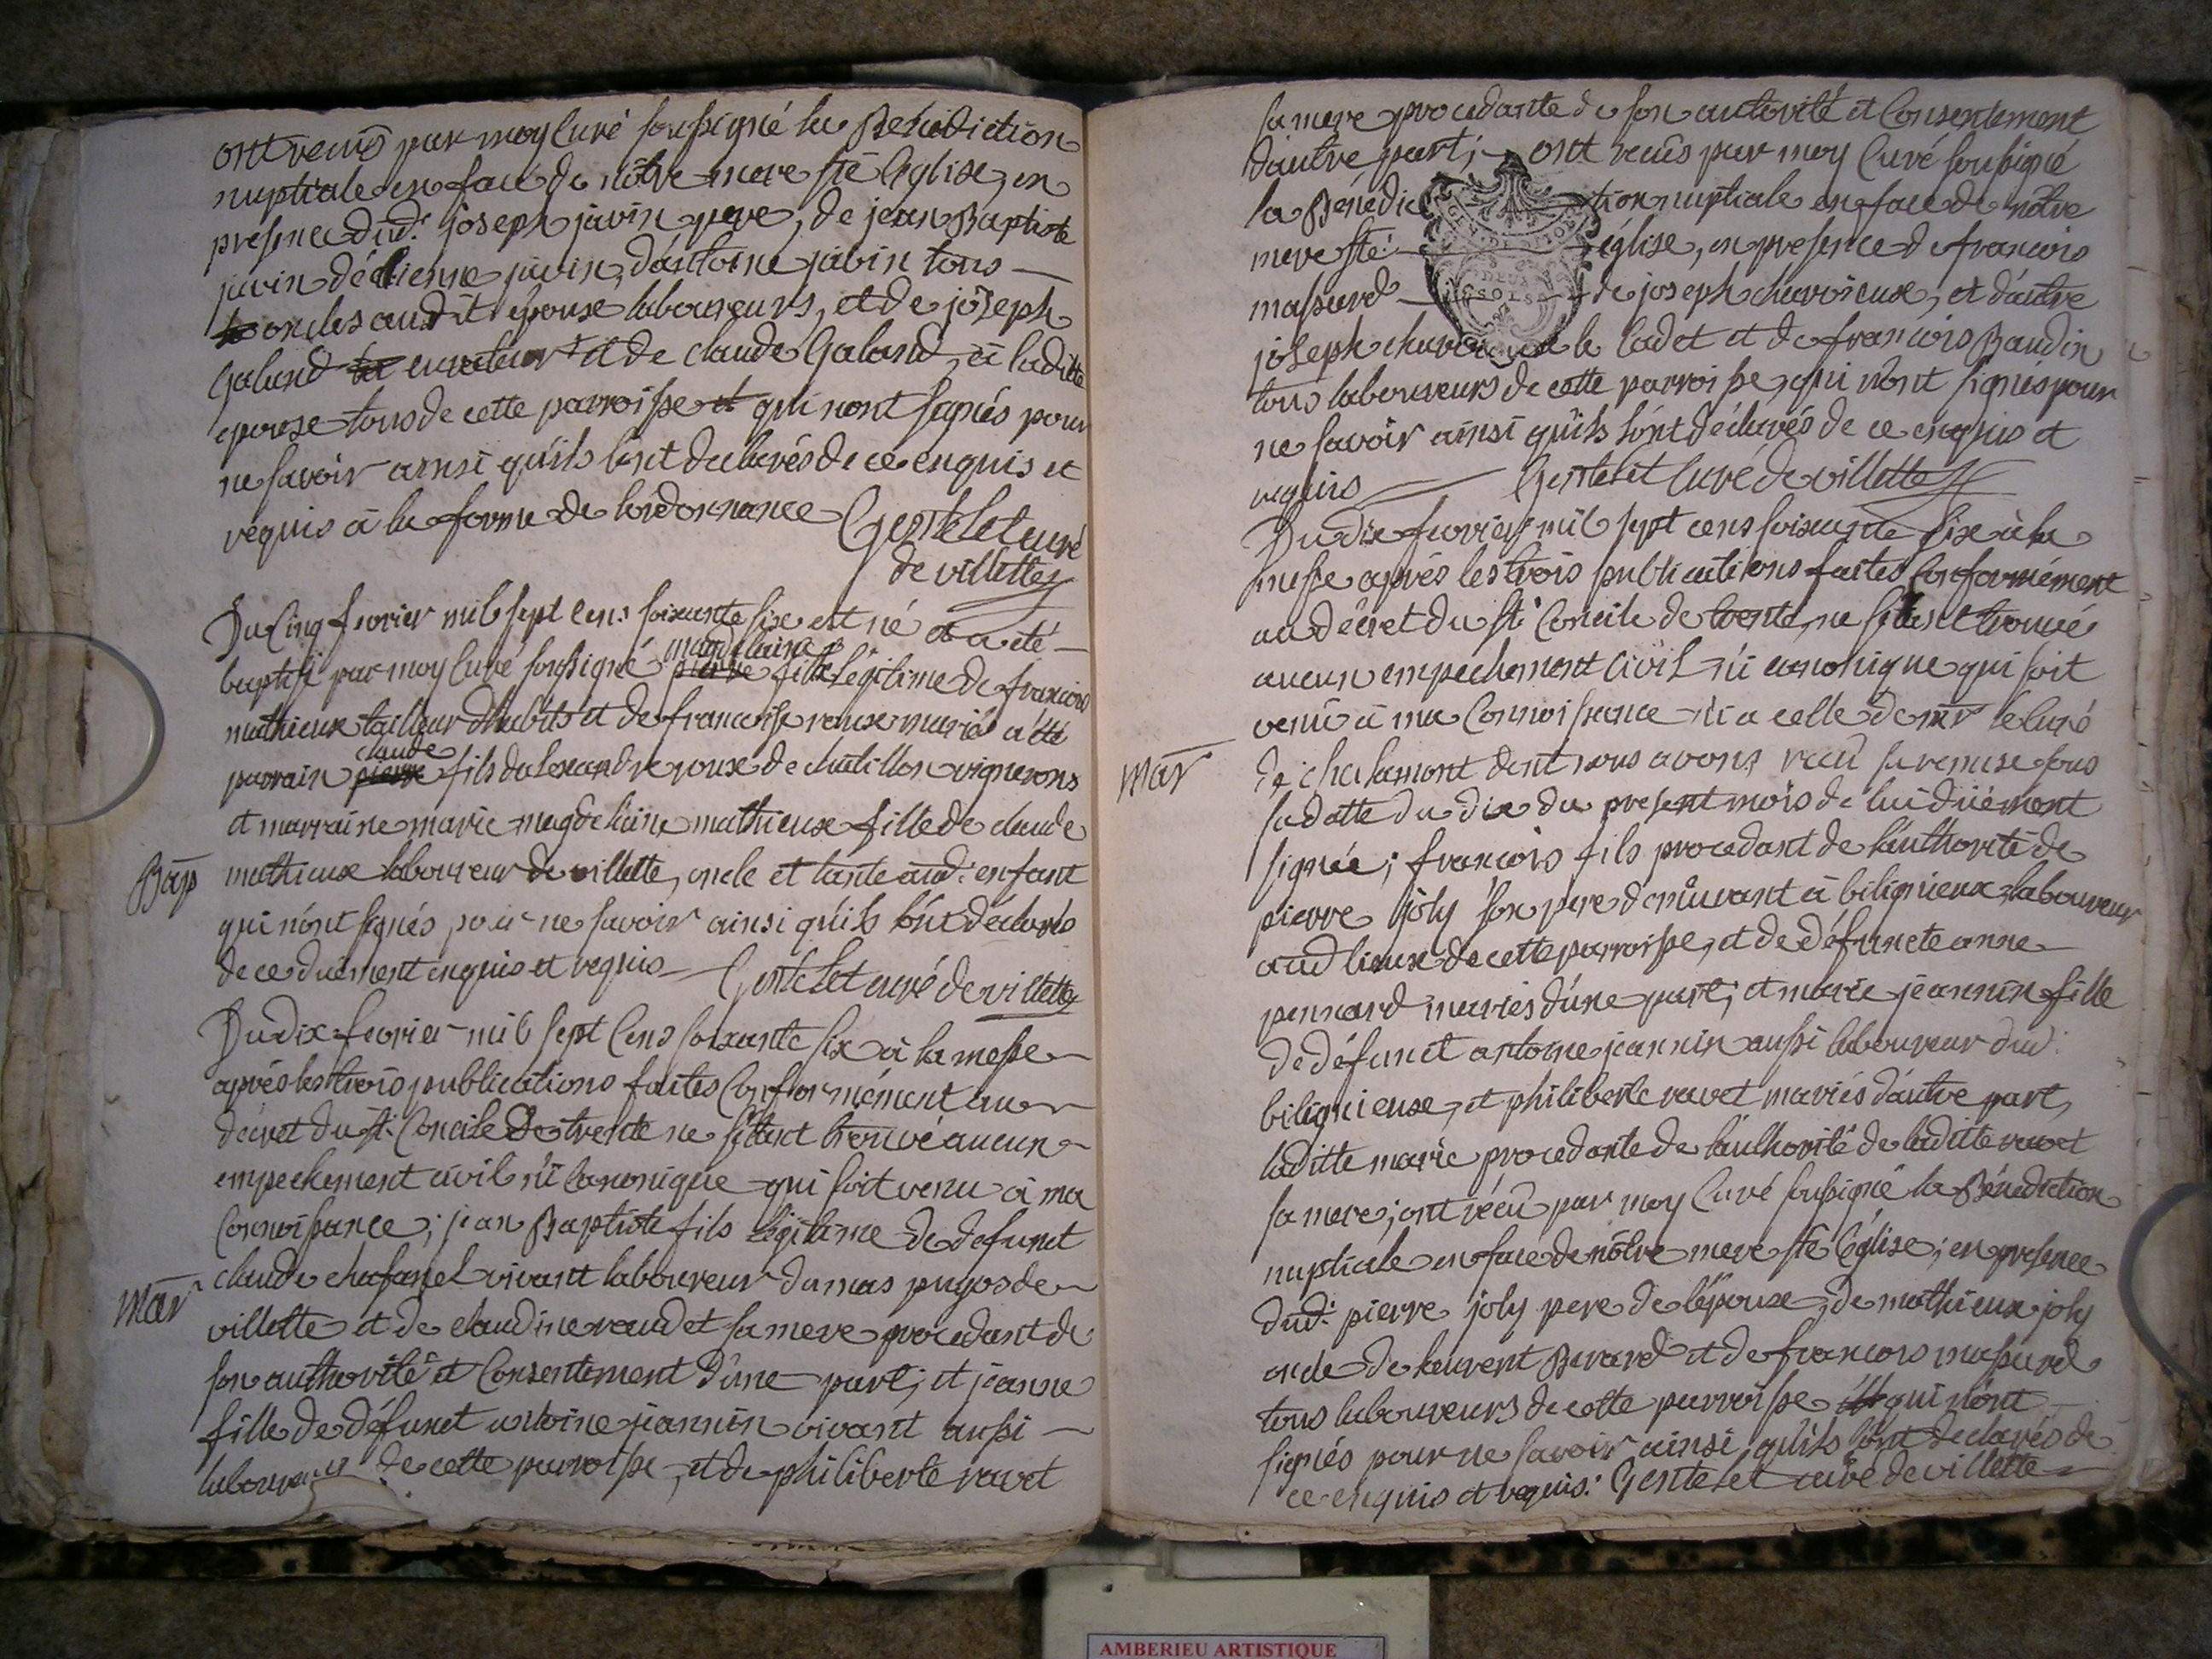 ont reçus par moy Curé soussigné la Benediction
nuptiale en face de nôtre mere ste Eglise, en
presence dud: joseph javin pere, de jean Baptiste
javin détienne javin, dántoine javin tous
oncles audit epouse laboureurs, et de joseph
Galand curateur et de claude Galand, à ladite
epouse tous de cette parroisse et qui nont signés pour
ne savoir ainsi qu'ils lont declarés de ce enquis et
requis à la forme de lordonnance Gentelet curé
de villette
Du Cinq fevrier mil sept Cens soixante six est né et a été
baptisé par moy Curé soussigné magdelaine
pierre fille légitime de francois
mathieux tailleur dhabits et de francoise roux mariés a été
parrain pierre claude fils dalexandre roux de chatillon vignerons
et marraine marie magdelaine mathieux fille de claude
Bap mathieux laboureur de villette, oncle et tante aud: enfant
qui nónt signés pour ne savoir ainsi quíls lónt déclarés
de ce duëment enquis et requis Gentelet curé de villette
Du dix fevrier mil sept Cens soixante six à la messe
après les trois publications faites Conformément au
décret du st. Concile de trente ne s'étant trouvé aucun
empechement civil ni Canonique qui soit venu à ma
Connoissance; jean Baptiste fils légitime de defunct
Mar claude chafanel vivant laboureur du mas pugos de
villette et de claudine raudet sa mere procedant de
son authorité et Consentement d'une part; et jeanne
fille de défunct antoine jeannin vivant aussi
laboureur de cette parroisse, et de philiberte ravet
sa mere procedante de son autorité et Consentement
dáutre part; ont reçûs par moy Curé soussigné
la Bénédiction nuptiale en face de nôtre
mere ste. église, en presence de francois
massard de joseph chavoieux, et dáutre
joseph chavoieux le Cadet et de francois Baudin
tous laboureurs de cette parroisse, qui nónt signés pour
ne savoir ainsi quíls lónt déclarés de ce enquis et
requis Gentelet Curé de villette
Du dix fevrier mil sept cens soixante six à la
messe après les trois publications faites Conformément
au décret du st. Concile de trente, ne s'étant trouvé
aucun empechement Civil ni canonique qui soit
venû à ma Connoissance ni a celle de mr le Curé
Mar de chalamont dont nous avons recû sa remise sous
sa datte du dix du present mois de lui düement
signée; francois fils procedant de láuthorité de
pierre joly son pere demeurant à biligneux laboureur
aud lieux de cette parroisse, et de défuncte anne
pennard mariés dúne part; et marie jeannin fille
de défunct antoine jeannin aussi laboureur dud:
biligneux, et philiberte ravet mariés dáutre part,
laditte marie procedante de láuthorité de laditte ravet
sa mere; ont récû par moy Curé soussigné la Bénédiction
nuptiale en face de nôtre mere ste église; en presence
dud: pierre joly pere de lépoux, de mathieux joly
oncle de laurent Berard et de francois massard
tous laboureurs de cette parroisse qui nónt
signés pour ne savoir ainsi quíls lónt declarés de
ce enquis et requis: Gentelet curé de villette
AMBERIEU ARTISTIQUE